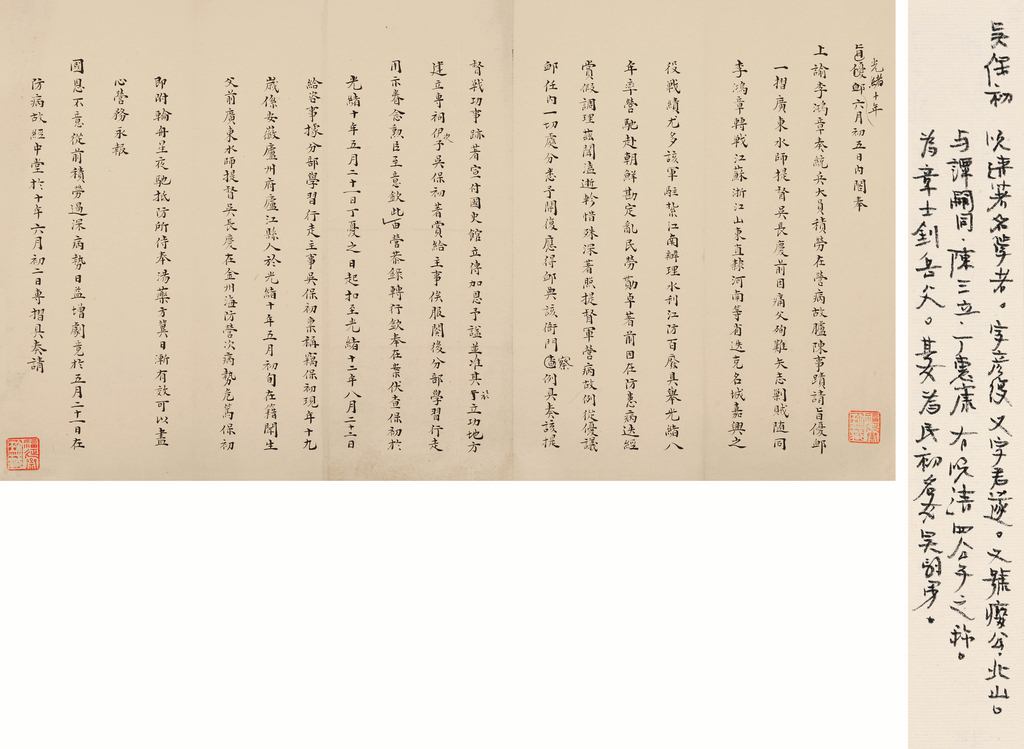 吴保初
晚清著名学者。字彦復 又字君遂。又號瘿公、北山。
与譚嗣同、陳三立、丁惠康 有「晚清」四公子之称。
为章士釗岳父。其女为民初名女吴弱男。
光緒十年
旨優卹六月初五日內閣奉
上諭李鴻章奏統兵大員積勞在營病故臚陳事蹟請旨優卹
一摺廣東水師提督吳長慶前因痛父殉難矢志剿賊隨同
李鴻章轉戰江蘇浙江山東直隸河南等省迭克名城嘉興之
役戰績尤多該軍駐紮江南辦理水利江防百廢具舉光緒八
年率營馳赴朝鮮勘定亂民勞勩卓著前因在防患病迭經
賞假調理茲聞溘逝軫惜殊深著照提督軍營病故例從優議
卹任內一切處分悉予開復應得卹典該衙門察例具奏該提
督戰功事跡著宣付國史館立傳加恩予謚並准其於立功地方
建立專祠伊子吳保初著賞給主事俟服闋後分部學習行走
用示眷念勳臣至意欽此百營恭錄轉行欽奉在案伏查保初於
光緒十年五月二十一日丁憂之日起扣至光緒十二年八月二十二日
給咨事據分部學習行走主事吳保初稟稱竊保初現年十九
歲係安徽廬州府廬江縣人於光緒十年五月初旬在籍聞生
父前廣東水師提督吳長慶在金州海防營次病勢危篤保初
即附輪舟星夜馳抵防所侍奉湯藥方冀日漸有效可以盡
心營務永報
國恩不意從前積勞過深病勢日益增劇竟於五月二十一日在
防病故經中堂於十年六月初二日專摺具奏請